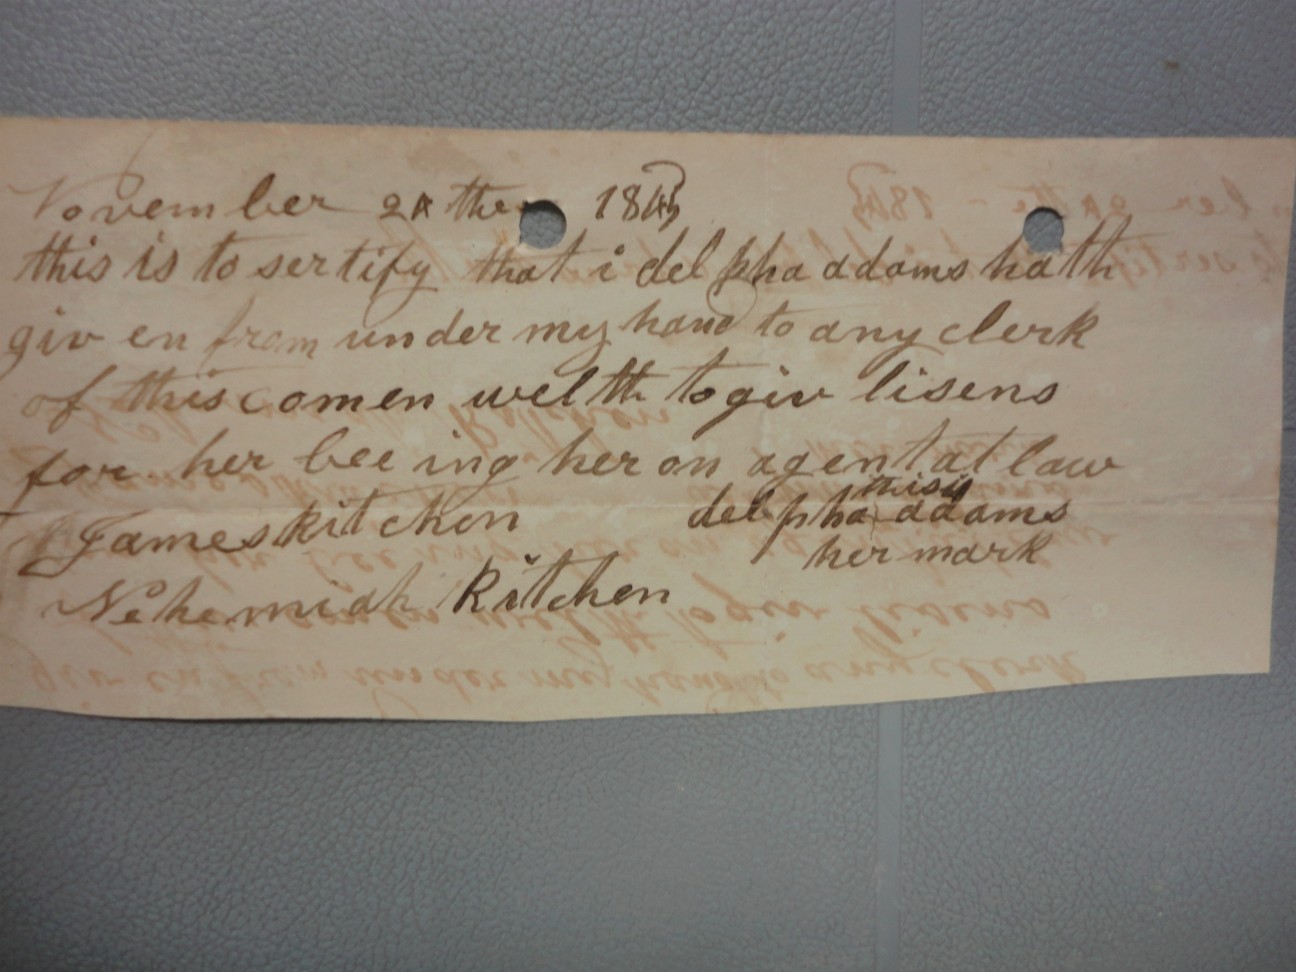 November 24 the 1845
this is to sertify that i delpha addams hath
giv en from under my hand to any clerk
of this comen welth to giv lisens
for her bee ing her on agent at law
James Kitchen
this is
delpha addams
her mark
Nehemiah Kitchen